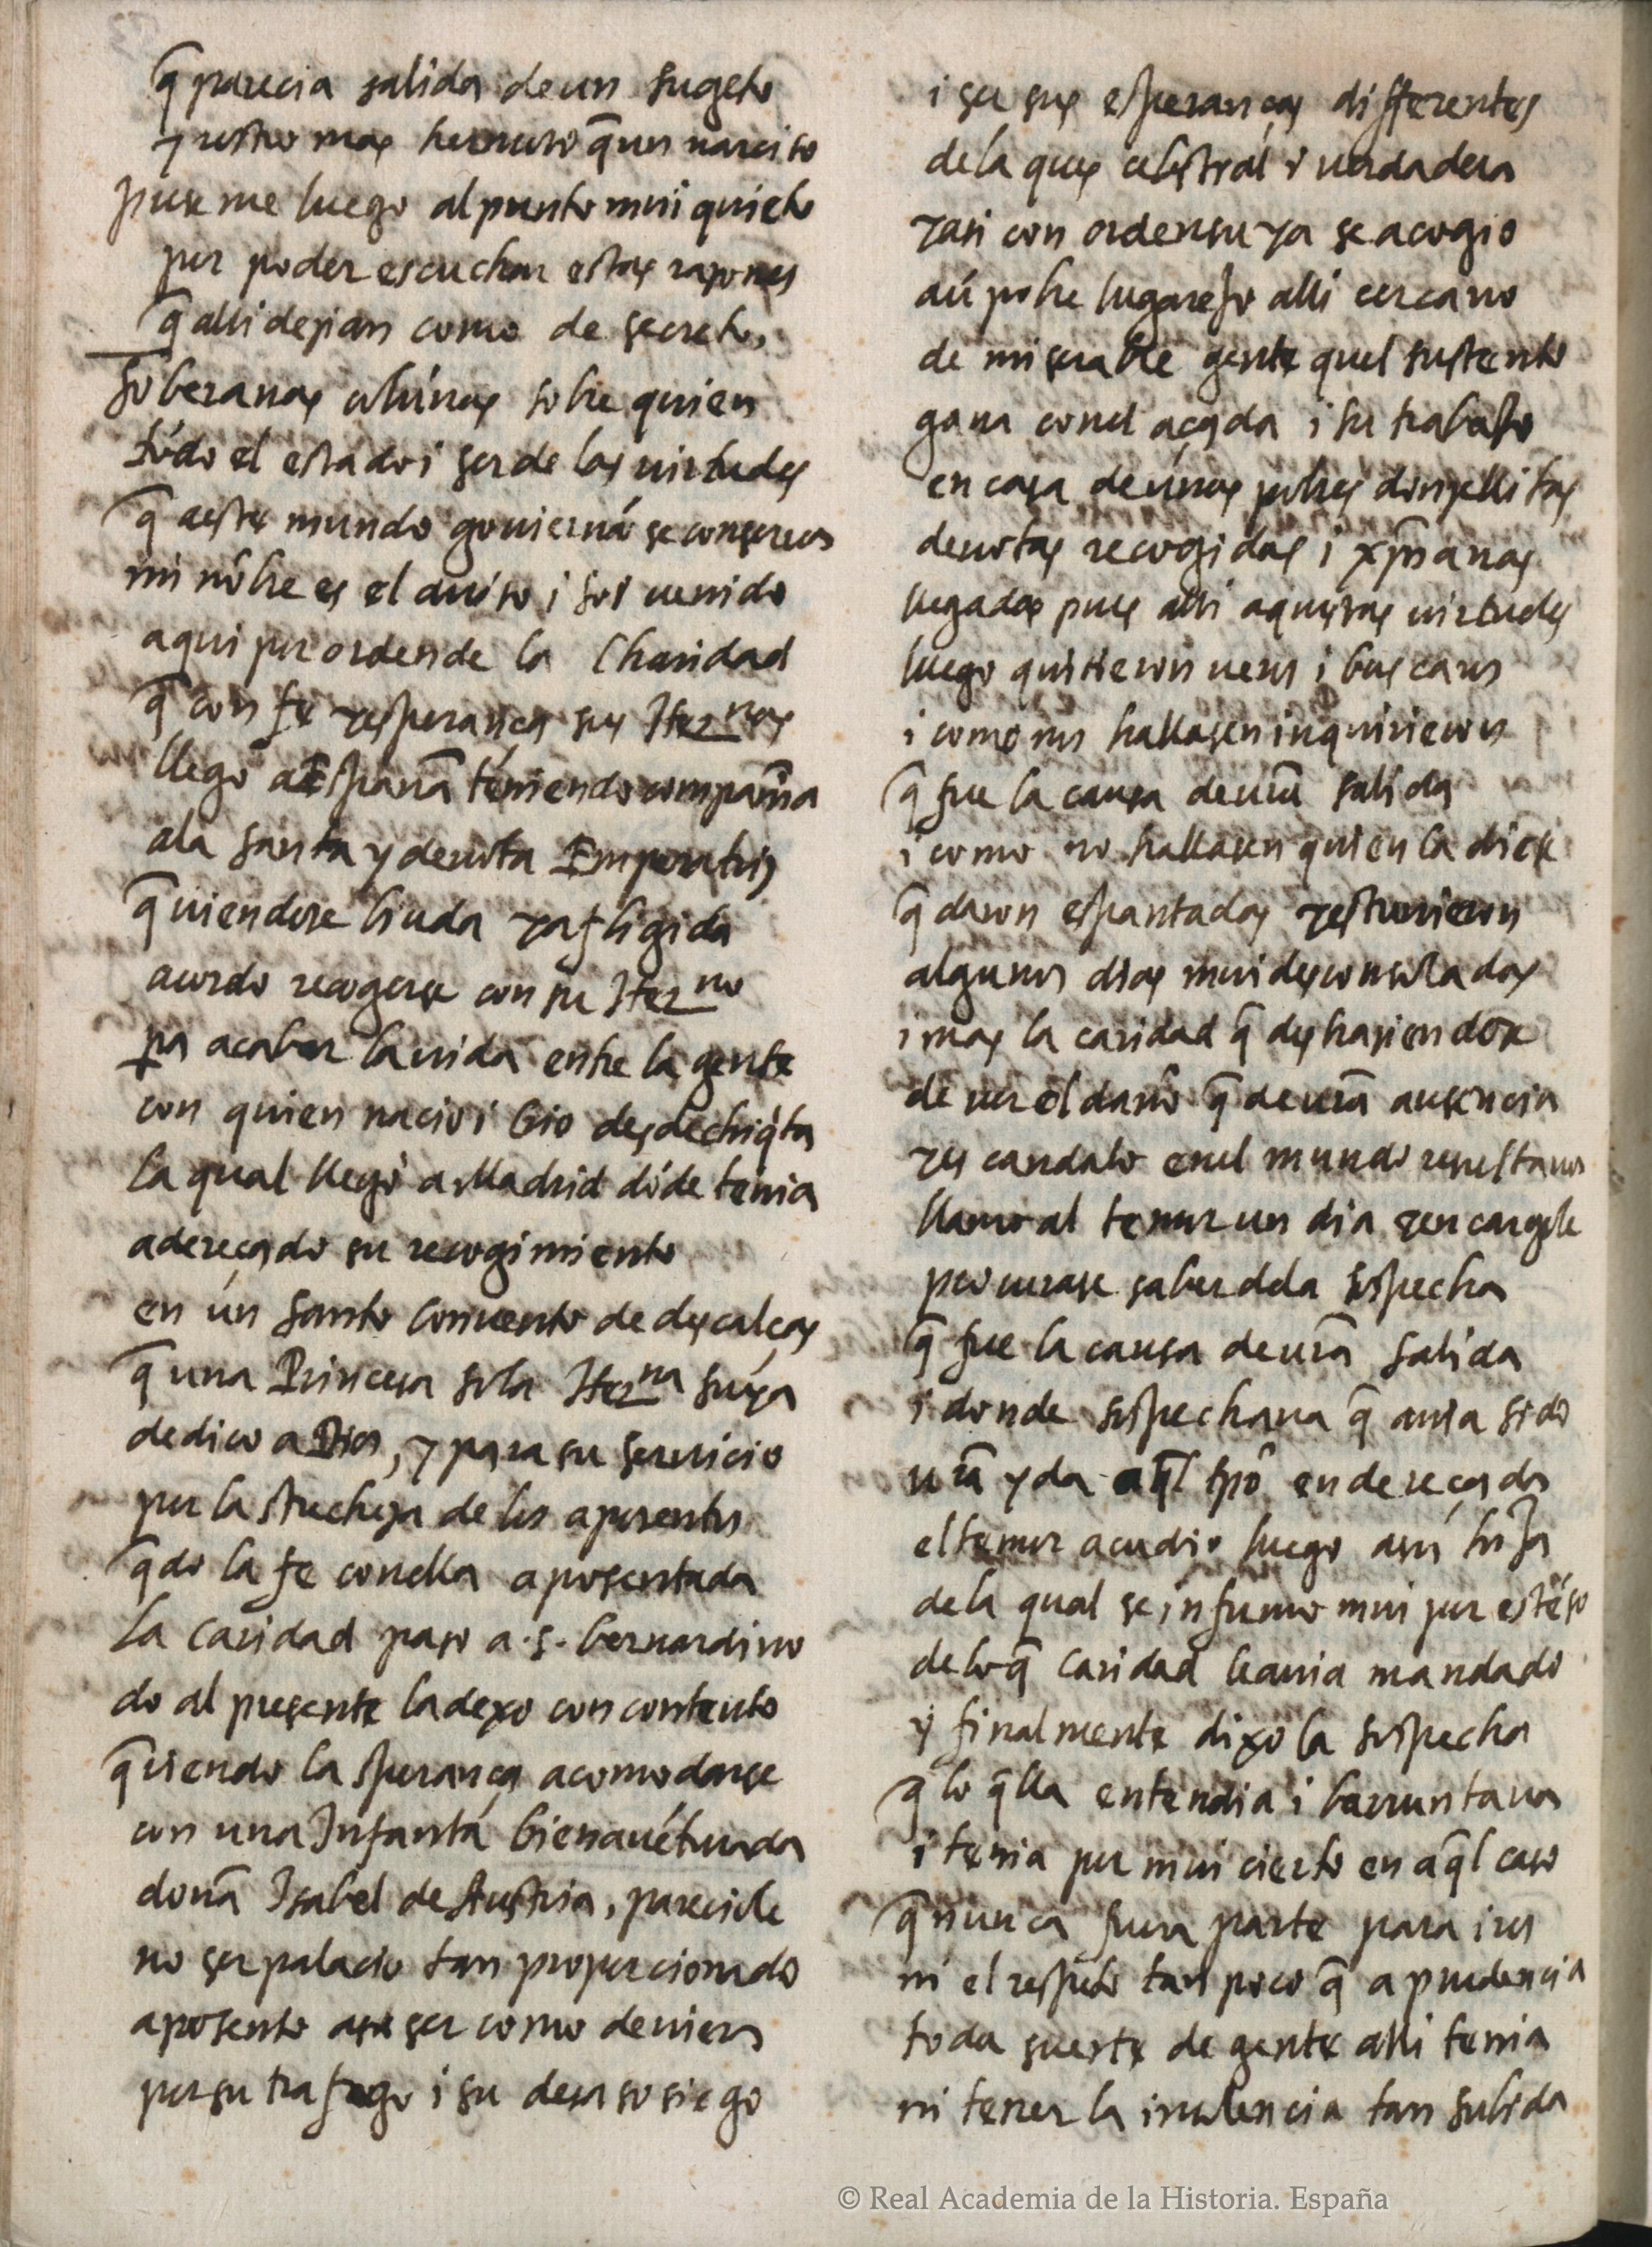 q̃ parecia salida de un sugeto
y rostro mas hermoso q̃ un narciso
puse me luego al punto mui quieto
por poder escuchar estas razones
q̃ alli dezian como de secreto,
Soberanas colunas sobre quien
tódo el estado i ser de las uirtudes
q̃ aeste mundo gouierná se conserua
mi nóbre es el auiso i soi uenido
aqui por orden de la Charidad
q̃ con fe y esperança sus Her nas
llegó a España téniendo compañia
ala santa y deuota Emperatriz
q̃ uiendose biuda y afligida
acordo recogerse con su Her no
pa acabar la uida entre la gente
con quien nacio i bio desde chiq̃ta
la qual llegó a Madrid dóde tenia
adereçado su recogimiento
en ún santo conuento de descalças
q̃ una Princesa sola Her na súya
dedico a Dios, y para su seruicio
por la strecheza de los aposentos
q̃do la fe con ella aposentada
la caridad paso a .s. bernardino
do al presente la dexo con contento
q̃riendo la sperança acomodarse
con una Infantá bienauéturada
doña Isabel de Austria, parecióle
no ser palacio tan proporcionado
aposento a su ser como deuiera
por su trafago i su desasosiego
i ser sus esperanças differentes
de la ques celestrál i uerdadera
y asi con orden suya se acogio
aú pobre lugarejo alli cercano
de miserable gente quel sustento
gana con el açada i su trabajo
en casa de únas pobres donzellitas
deuotas recogidas i xp̃ianas
llegadas pues alli aquestas uirtudes
luego quisieron ueros i buscaros
i como nos hallasen inquirieron
q̃ fue la causa de ur̃a salida
i como no hallasen quien la diese
q̃daron espantadas y estuuieron
algunos dias mui desconsoladas
i mas la caridad q̃ deshaziendose
de uer el daño q̃ de ur̃a ausencia
y escandalo en el mundo resultaua
llamo al temor un dia y encargole
procurase saber dela sospecha
q̃ fue la causa de ur̃a salida
i donde sospechaua q̃ auia sido
ur̃a yda aq̃l tpõ endereçada
el temor acudio luego a su hija
de la qual se informo mui por esténso
de lo q̃ caridad le auia mandado
y finalmente dixo la sospecha
q̃ lo q̃lla entendia i barruntaua
i tenia por mui cierto en aq̃l caso
q̃ nunca fuera parte para iros
ni el respeto tan poco q̃ a prudencia
toda suerte de gente alli tenia
ni tener la insolencia tan subida
© Real Academia de la Historia. España